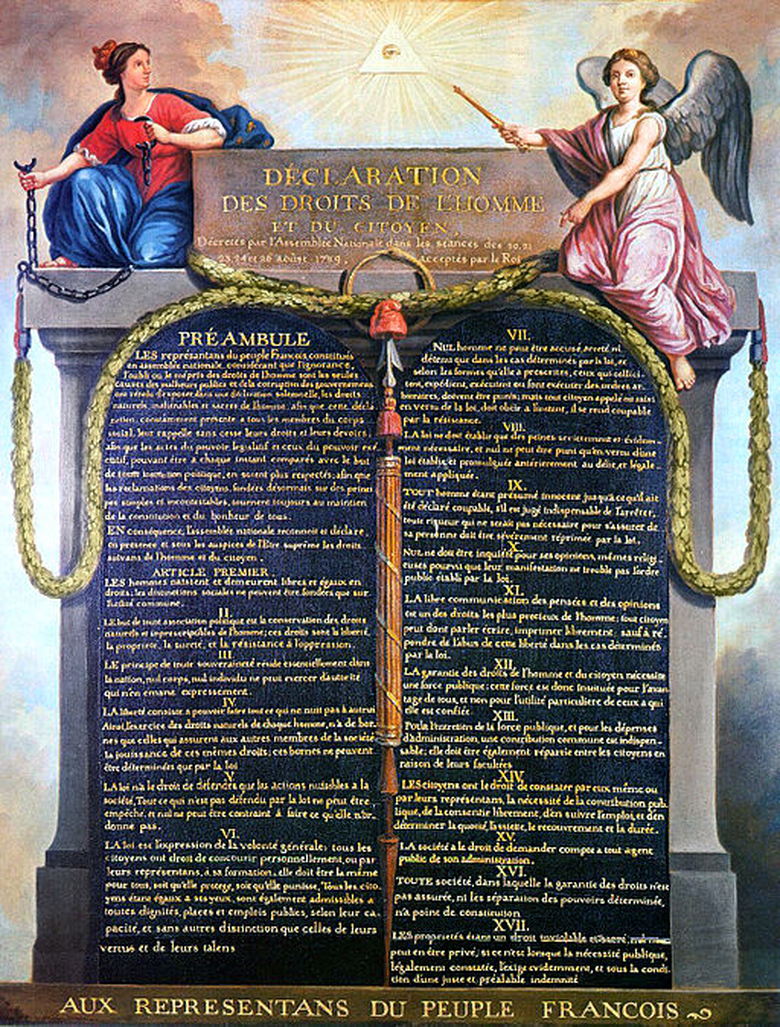 DÉCLARATION
DES DROITS DE L'HOMME
ET DU CITOYEN,
Décretés par l'Assemblée Nationale dans les séances des 20, 21
23, 24 et 26 Août 1789, acceptés par le Roi
PRÉAMBULE
LES représentans du peuple François constitués
en assemblée nationale, considérant que l'ignorance,
l'oubli ou le mépris des droits de l'homme sont les seules
causes des malheurs publics et de la corruption des gouvernemens
ont résolu d'exposer dans une déclaration solemnelle, les droits
naturels, inaliénables et sacrés de l'homme; afin que cette décla
ration, constamment présente a tous les membres du corps
social, leur rappelle sans cesse leurs droits et leurs devoirs,
afin que les actes du pouvoir législatif et ceux du pouvoir exé
cutif, pouvant être a chaque instant comparés avec le but
de toute institution politique, en soient plus respectés; afin que
les réclamations des citoyens, fondées désormais sur des prin
pes simples et incontestables, tournent toujours au maintien
de la constitution et du bonheur de tous.
EN conséquence, l'assemblée nationale reconnoit et déclare
en presence et sous les auspices de l'Etre suprême les droits
suivans de l'homme et du citoyen.
ARTICLE PREMIER
LES hommes naissent et demeurent libres et égaux en
droits, les distinctions sociales ne peuvent être fondées que sur
l'utilité commune.
II.
LE but de toute association politique est la conservation des droits
naturels et imprescriptibles de l'homme; ces droits sont la liberté,
la propriété, la sureté, et la résistance à l'oppression.
III
LE principe de toute souveraineté réside essentiellement dans
la nation, nul corps, nul individu ne peut exercer d'autorité
qui n'en émane expressement.
IV
LA liberté consiste a pouvoir faire tout ce qui ne nuit pas à autrui
Ainsi, l'exercice des droits naturels de chaque homme, n'a de bor-
nes que celles qui assurent aux autres membres de la société
la jouissance de ces mêmes droits; ces bornes ne peuvent
être déterminées que par la loi
V.
LA loi n'a le droit de défendre que les actions nuisibles a la
société. Tout ce qui n'est pas défendu par la loi ne peut être
empêché, et nul ne peut être contraint à faire ce qu'elle n'or-
donne pas.
VI.
LA loi est l'expression de la volonté générale; tous les
citoyens ont droit de concourir personnellement, ou par
leurs représentans, à sa formation. elle doit être la même
pour tous, soit qu'elle protege, soit qu'elle punisse, Tous les cito
yens étant égaux a ses yeux, sont également admissibles a
toutes dignités, places et emplois publics, selon leur ca
pacité, et sans autres distinction que celles de leurs
vertus et de leurs talens
VII.
NUL homme ne peut être accusé, arreté ni
détenu que dans les cas déterminés par la loi, et
selon les formes qu'elle a prescrites, ceux qui sollici-
tent, expédient, exécutent ou font exécuter des ordres ar-
bitraires, doivent être punis; mais tout citoyen appelé ou saisi
en vertu de la loi, doit obéir a l'instant, il se rend coupable
par la résistance.
VIII.
LA loi ne doit établir que des peines strictement et évidem-
ment nécessaire, et nul ne peut être puni qu'en vertu d'une
loi établie et promulguée antérierement au délit, et légale-
ment appliquée.
IX.
TOUT homme étant présumé innocent jusqu'a ce qu'il ait
été déclaré coupable, s'il est jugé indispensable de l'arrêter,
toute rigueur qui ne serait pas nécessaire pour s'assurer de
sa personne doit être sévèrement réprimée par la loi.
X.
NUL ne doit être inquiété pour ses opinions, mêmes religi-
euses pourvu que leur manifestation ne trouble pas l'ordre
public établi par la loi.
XI.
LA libre communication des pensées et des opinions
est un des droits les plus precieux de l'homme; tout citoyen
peut dont parler écrire, imprimer librement, sauf à ré-
pondre de l'abus de cette liberté dans les cas déterminés
par la loi.
XII.
LA garantie des droits de l'homme et du citoyen nécessite
une force publique; cette force est donc instituée pour l'avan
tage de tous, et non pour l'utilité particuliere de ceux a qui
elle est confiée.
XIII.
Pour l'entretien de la force publique, et pour les dépenses
d'administration, une contribution commune est indispen-
sable; elle doit être également répartie entre les citoyens en
raison de leurs facultées
XIV.
LES citoyens ont le droit de constater par eux même ou
par leurs représentans, la nécessité de la contribution pub-
lique, de la consentir librement, d'en suivre l'emploi, et d'en
déterminer la quotité, l'assiette, le recouvrement et la durée.
XV.
LA société a le droit de demander compte a tout agent
public de son administration.
XVI.
TOUTE société, dans laquelle la garantie des droits n'est
pas assurée, ni les séparation des pouvoirs déterminée,
n'a point de constitution
XVII.
LES proprietés étant un droit inviolable et sacré, nul ne
peut en être privé, si ce n'est lorsque la nécessité publique,
légalement constatée, l'exige evidemment, et sous la condi-
tion d'une juste et préalable indemnité
AUX REPRESENTANS DU PEUPLE FRANCOIS